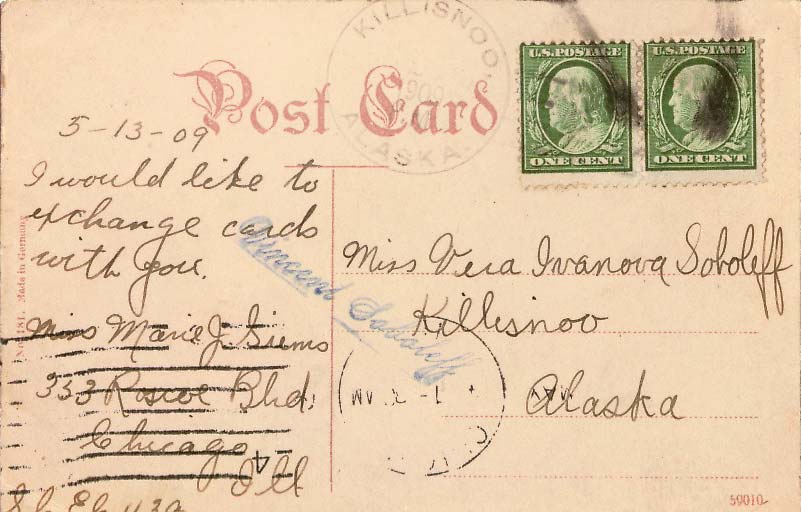 Post Card
KILLISNOO,
1909
ALASKA
U.S. POSTAGE
ONE CENT
U.S. POSTAGE
ONE CENT
5-13-09
I would like to
exchange cards
with you.
Miss Marie J. Siems
353 Roscoe Blvd.
Chicago
Ill
Made in Germany
Vincent Soboleff
Miss Vera Ivanova Soboleff
Killisnoo
Alaska
MAY
AM
59010